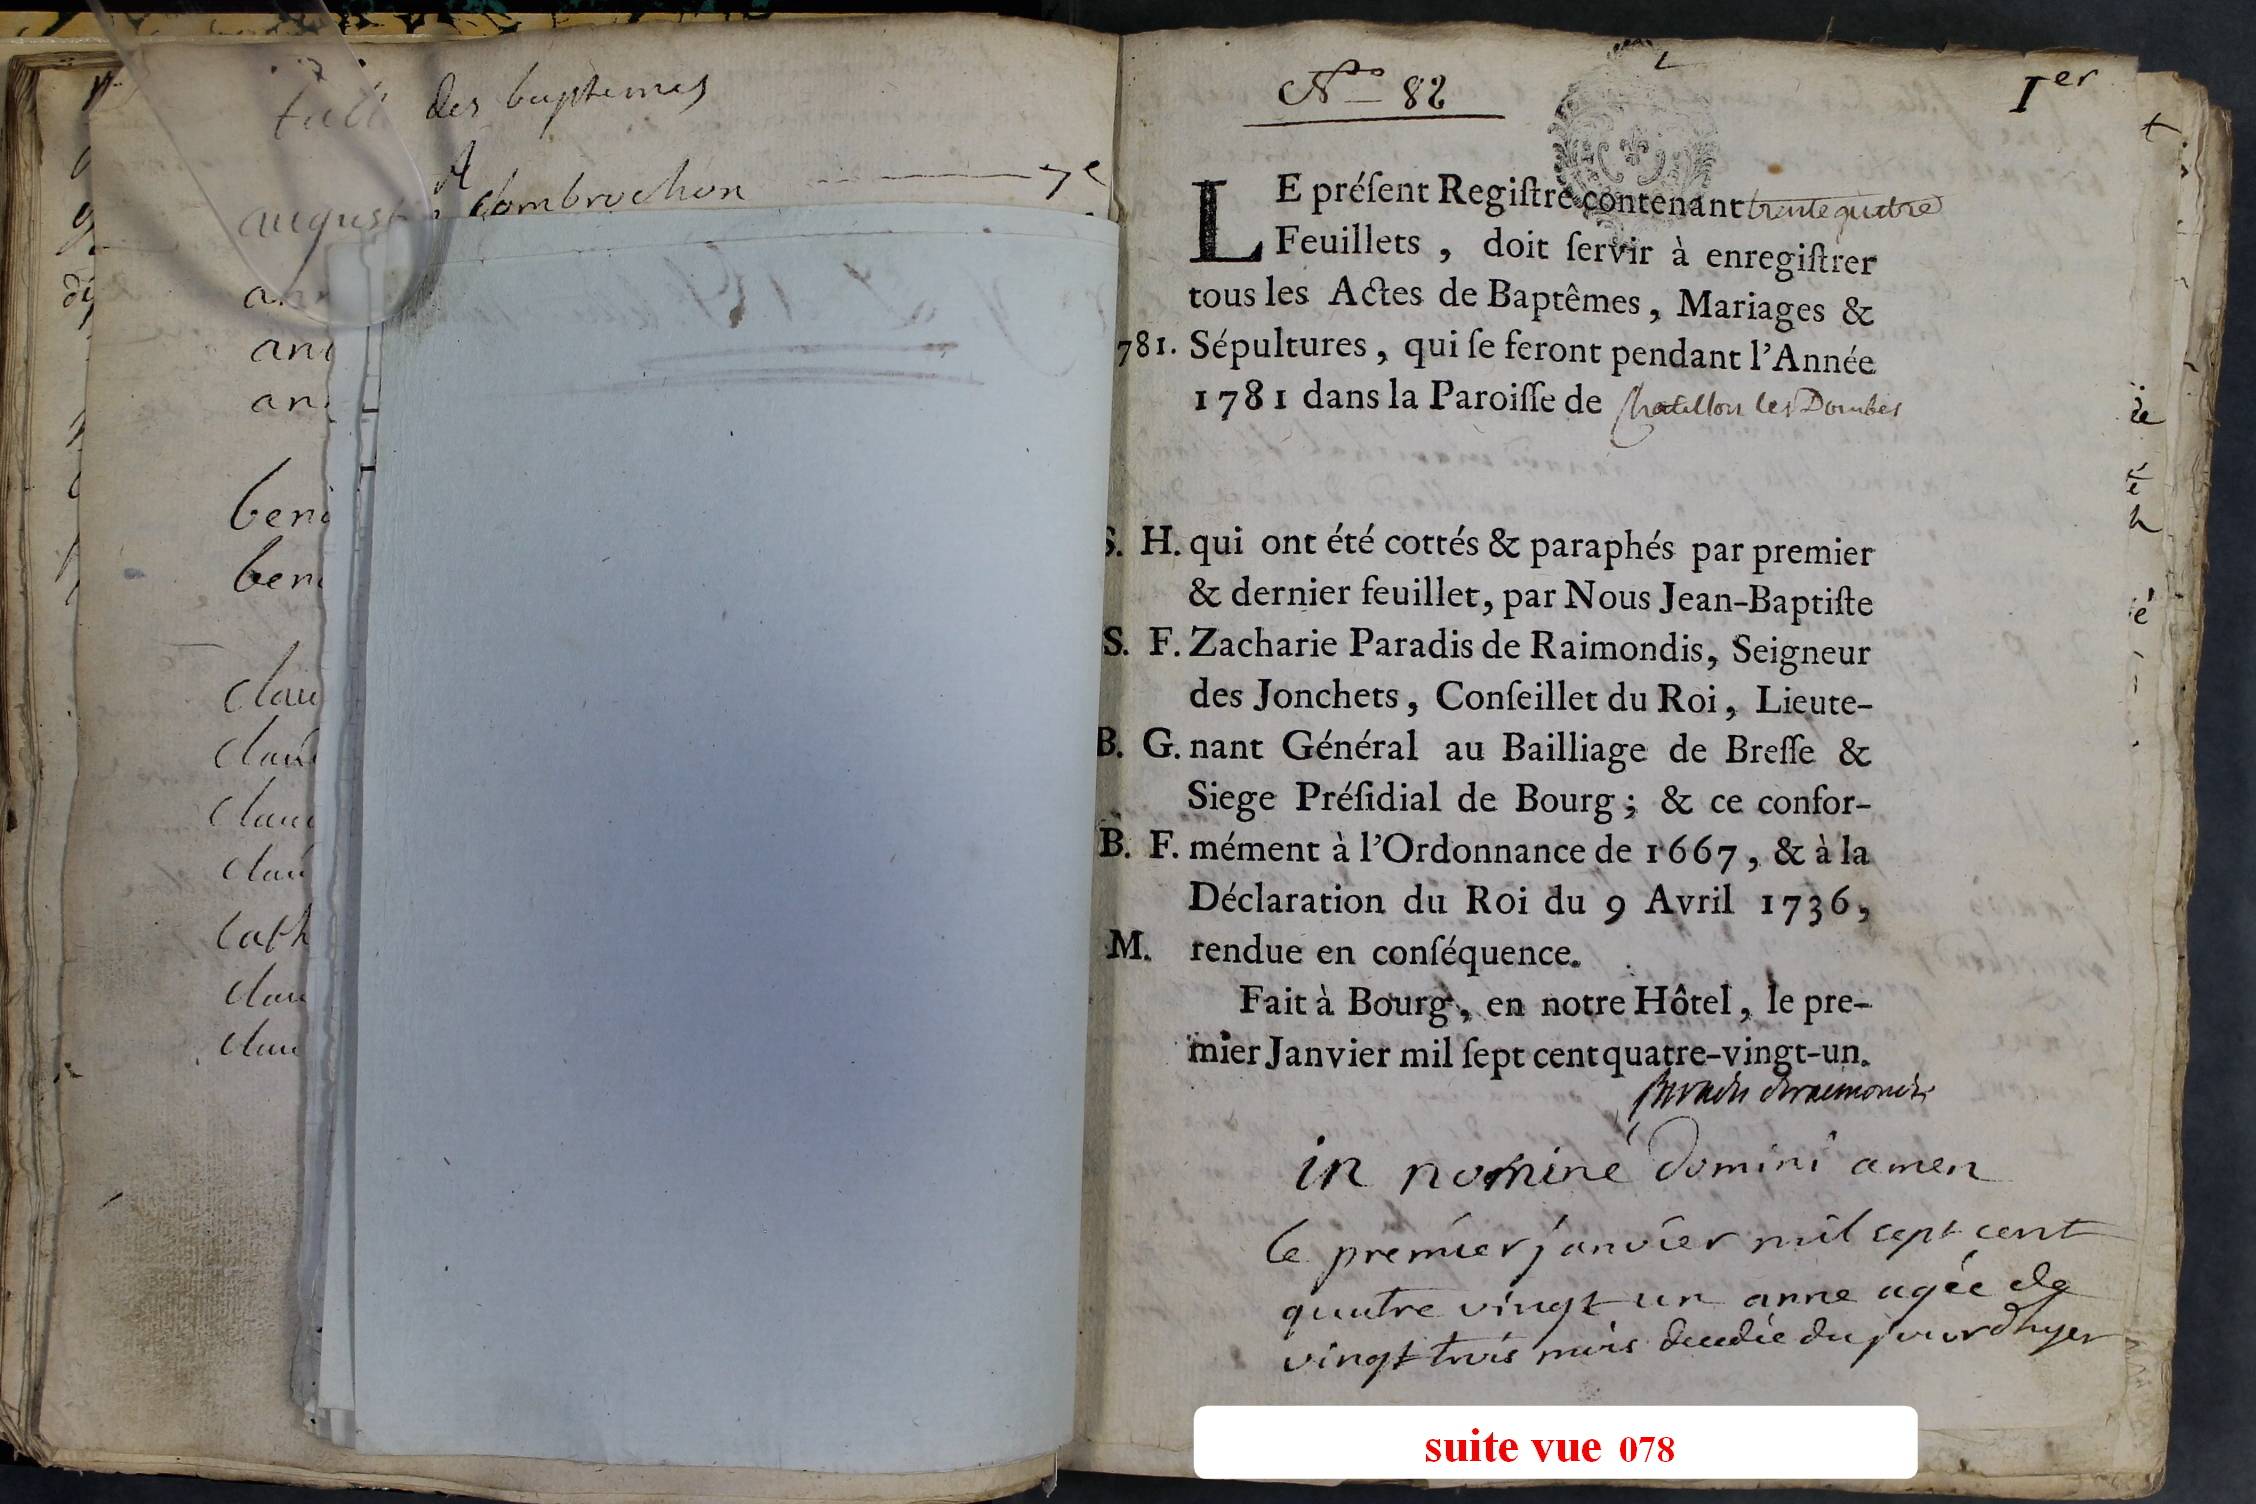 des baptemes
A
Combrochon 7e
ani
an
beni
ben
clau
clau
clau
clau
cath
clau
clau
No 82
1er
LE préſent Regiſtre contenant trente quatre
Feuillets, doit ſervir à enregiſtrer
tous les Actes de Baptêmes, Mariages &
781. Sépultures, qui ſe feront pendant l'Année
1781 dans la Paroiſſe de Chatillon les Dombes
S. H. qui ont été cottés & paraphés par premier
& dernier feuillet, par Nous Jean-Baptiſte
S. F. Zacharie Paradis de Raimondis, Seigneur
des Jonchets, Conſeillet du Roi, Lieute-
B. G. nant Général au Bailliage de Breſſe &
Siege Préſidial de Bourg; & ce confor-
B. F. mément à l'Ordonnance de 1667, & à la
Déclaration du Roi du 9 Avril 1736,
M. rendue en conſéquence.
Fait à Bourg, en notre Hôtel, le pre-
mier Janvier mil ſept cent quatre-vingt-un.
paradis deraimondis
in nominé domini amen
le premier janvier mil sept cent
quatre vingt un anne agée de
vingt trois mois decedée du jour dhyer
suite vue 078